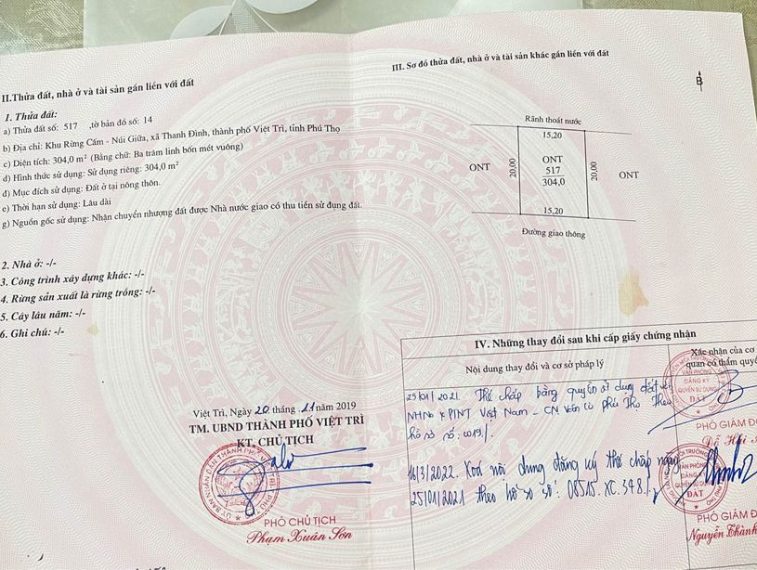 II.Thửa đất, nhà ở và tài sản gắn liền với đất
1. Thửa đất:
a) Thửa đất số: 517 ,tờ bản đồ số: 14
b) Địa chỉ: Khu Rừng Cấm - Núi Giữa, xã Thanh Đình, thành phố Việt Trì, tỉnh Phú Thọ
c) Diện tích: 304,0 m² (Bằng chữ: Ba trăm linh bốn mét vuông)
d) Hình thức sử dụng: Sử dụng riêng: 304,0 m²
đ) Mục đích sử dụng: Đất ở tại nông thôn.
e) Thời hạn sử dụng: Lâu dài
g) Nguồn gốc sử dụng: Nhận chuyển nhượng đất được Nhà nước giao có thu tiền sử dụng đất.
2. Nhà ở: -/-
3. Công trình xây dựng khác: -/-
4. Rừng sản xuất là rừng trồng: -/-
5. Cây lâu năm: -/-
6. Ghi chú: -/-
Việt Trì, Ngày 20 tháng 11 năm 2019
TM. UBND THÀNH PHỐ VIỆT TRÌ
KT. CHỦ TỊCH
PHÓ CHỦ TỊCH
Phạm Xuân Sơn
III. Sơ đồ thửa đất, nhà ở và tài sản khác gắn liền với đất
B
Rãnh thoát nước
15,20
ONT
20,00
ONT
517
304,0
20,00
ONT
15,20
Đường giao thông
IV. Những thay đổi sau khi cấp giấy chứng nhận
Nội dung thay đổi và cơ sở pháp lý
Xác nhận của cơ
quan có thẩm quyề
25/01/2021. Thế chấp bằng quyền sử dụng đất
NHNo & PTNT Việt Nam - CN Phú Thọ Theo
hồ sơ số:
ĐĂNG KÝ
ĐẤT
PHÓ GIÁM ĐỐ
16/3/2022. Xoá nội dung đăng ký thế chấp ngày
25/01/2021 theo hồ sơ số: XC.348.
ĐẤT
PHÓ GIÁM ĐỐ
Nguyễn Thành